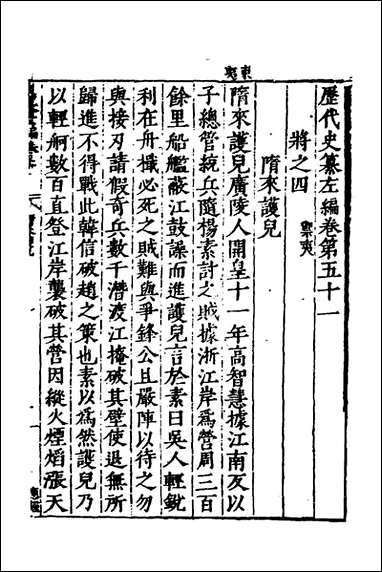 東夷
歷代史纂左編卷第五十一
將之四 禦夷
隋來護兒
隋來護兒廣陵人開皇十一年高智慧據江南反以
子總管統兵隨楊素討之賊據浙江岸爲營周三百
餘里船艦蔽江鼓譟而進護兒言於素曰吳人輕銳
利在舟檝必死之賊難與爭鋒公且嚴陣以待之勿
與接刃請假奇兵數千潛渡江掩破其壁使退無所
歸進不得戰此韓信破趙之策也素以爲然護兒乃
以輕舸數百直登江岸襲破其營因縱火煙熖漲天